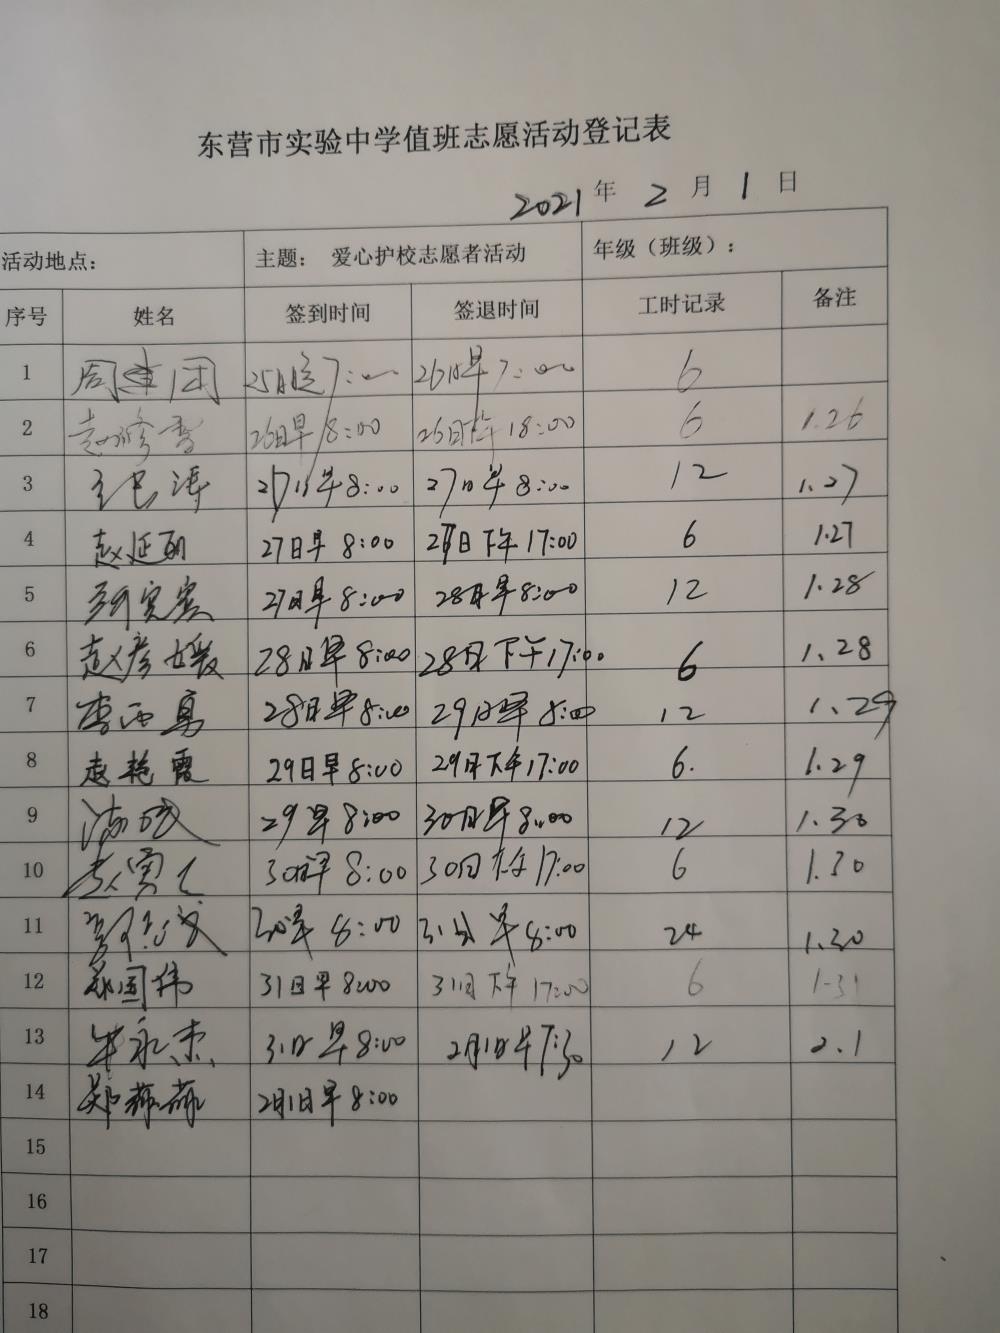 东营市实验中学值班志愿活动登记表
2021年 2月 1日
活动地点： 主题： 爱心护校志愿者活动 年级（班级）：
序号 姓名 签到时间 签退时间 工时记录 备注
1 7:00 26日早7:00 6
2 赵修香 26日早8:00 26日下午18:00 6 1.26
3 8:00 27日早8:00 12 1.27
4 赵延丽 27日早8:00 日下午17:00 6 1.27
5 27日早8:00 28日早8:00 12 1.28
6 赵彦媛 28日早8:00 28日下午17:00 6 1.28
7 李西勇 28日早8:00 29日早8:00 12 1.29
8 赵艳霞 29日早8:00 29日下午17:00 6. 1.29
9 29早8:00 30日早8:00 12 1.30
10 30日早8:00 30日下午17:00 6 1.30
11 8:00 31日早8:00 24 1.30
12 国伟 31日早8:00 31日下午17:00 6 1-31
13 牟永杰 31日早8:00 2月1日早7:30 12 2.1
14 郑燕燕 2月1日早8:00
15
16
17
18